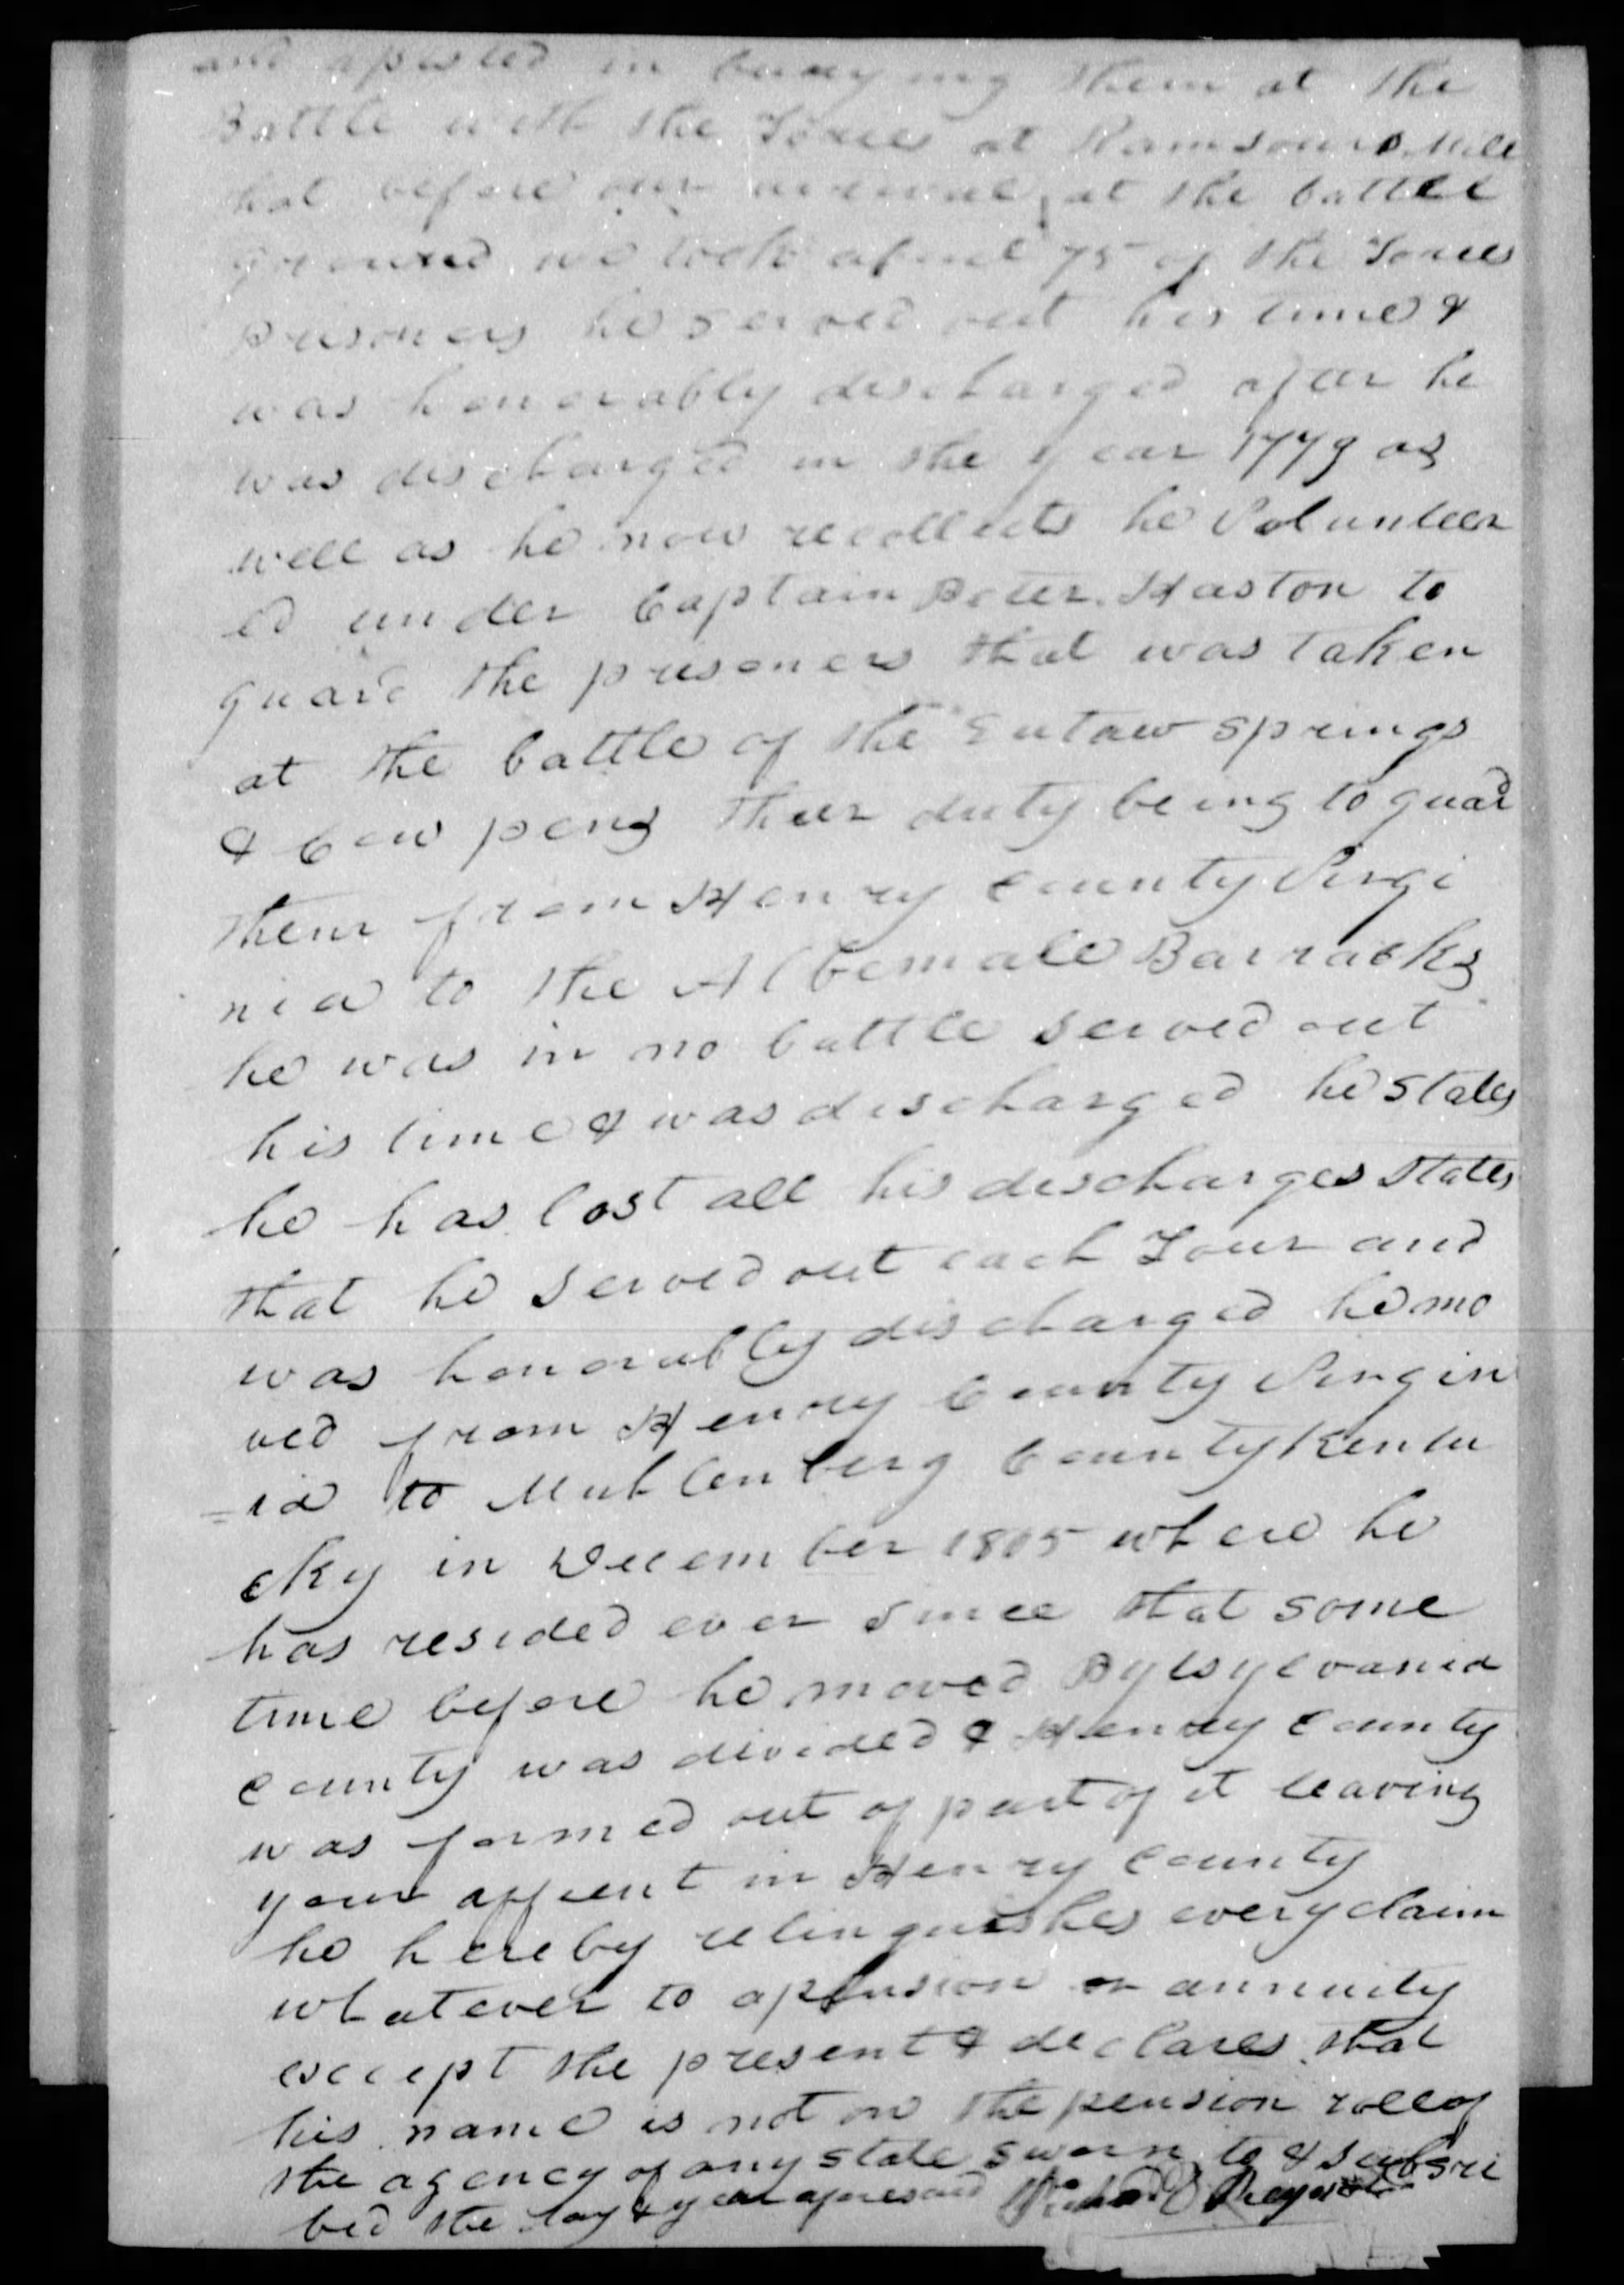 and assisted in burying them at the
Battle with the Tories at Ramsours Mill
that before our arrival at the battle
ground we took about 75 of the Tories
prisoners he served out his time &
was honorably discharged after he
was discharged in the year 1779 as
well as he now recollects he Volunteer
ed under Captain Peter Haston to
guard the prisoners that was taken
at the battle of the Eutaw Springs
& Cowpens their duty being to guard
them from Henry County Virgi
nia to the Albemale Barracks
he was in no battle served out
his time & was discharged he states
he has lost all his discharges states
that he served out each Tour and
was honorably discharged he mo
ved from Henry County Virgin
=ia to Muhlenberg County Kentu
cky in December 1805 where he
has resided ever since that some
time before he moved Pylsylvania
county was divided & Henry County
was formed out of part of it leaving
your affient in Henry County
he hereby relinquishes every claim
whatever to a pension or annuity
except the present & declares that
his name is not on the pension roll of
the agency of any state sworn to & subscri
bed the day & year aforesaid Richard Reynolds